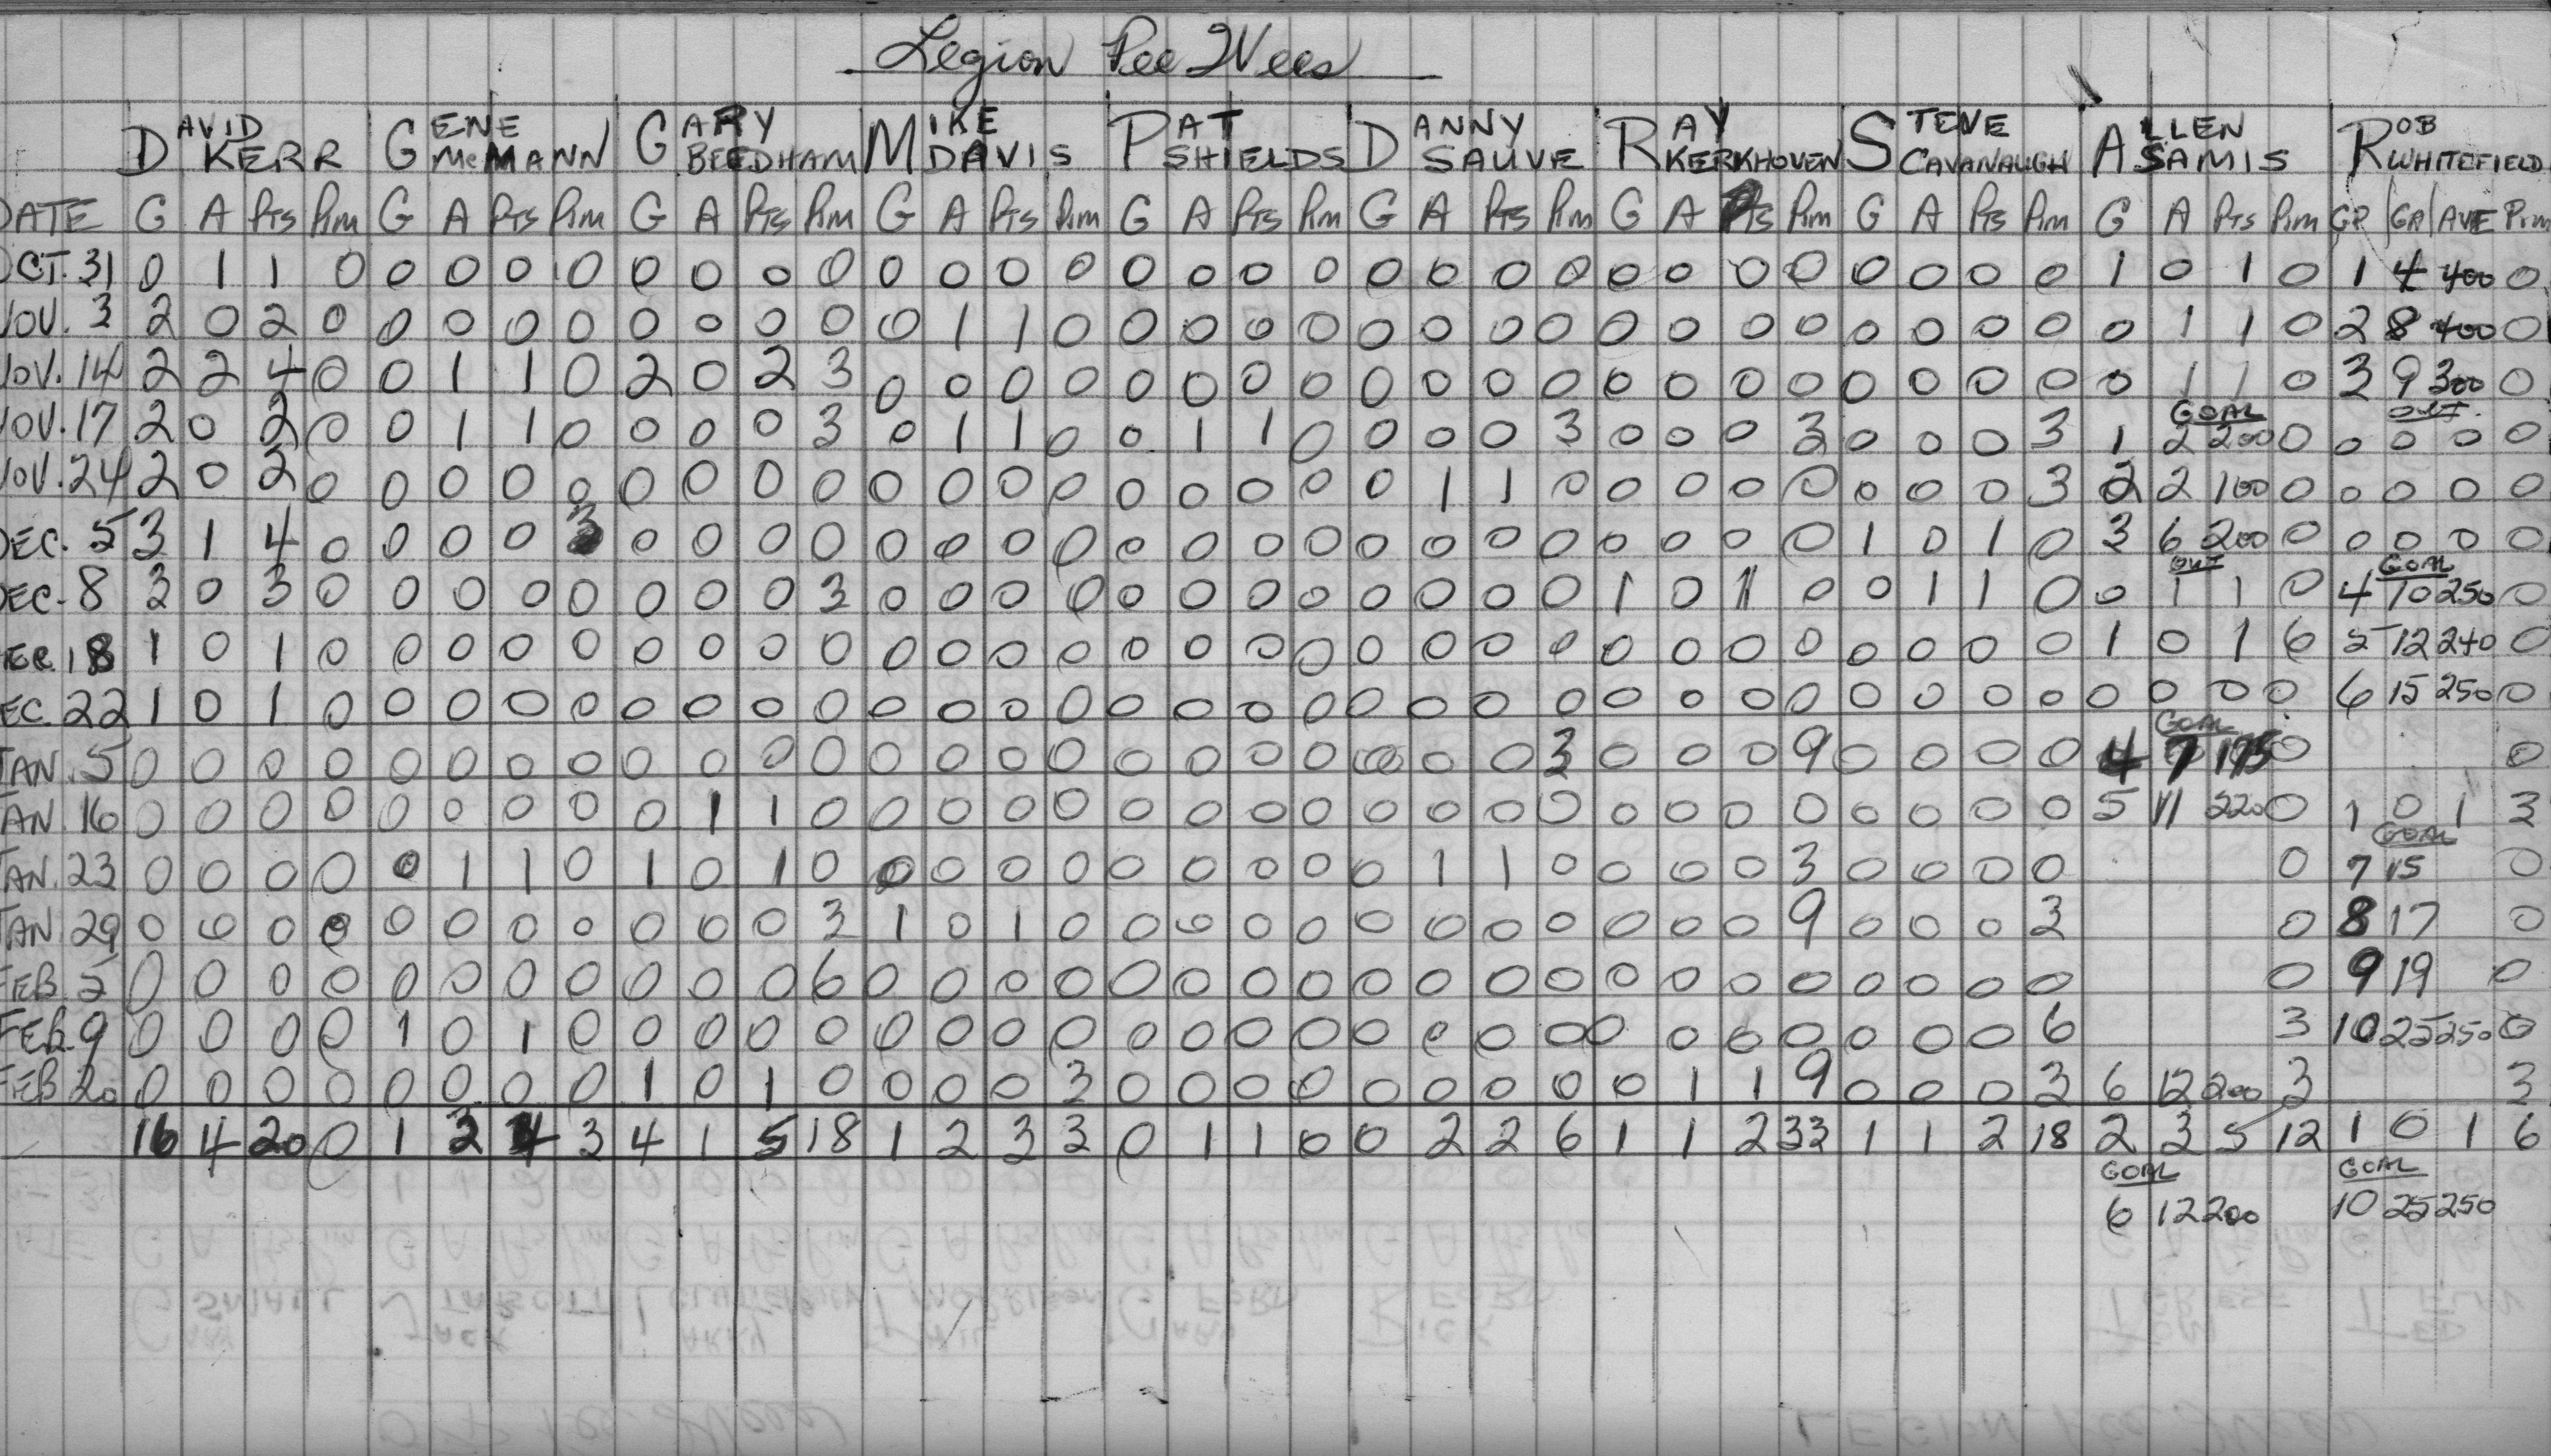 Legion Pee Wees
DAVID KERR GENE McMANN GARY BEEDHAM MIKE DAVIS PAT SHIELDS DANNY SAUVE RAY KERKHOVEN STEVE CAVANAUGH ALLEN SAMIS ROB WHITEFIELD
DATE G A Pts Pim G A Pts Pim G A Pts Pim G A Pts Pim G A Pts Pim G A Pts Pim G A Pts Pim G A Pts Pim G A Pts Pim GP GA AVE Pim
OCT. 31 0 1 1 0 0 0 0 0 0 0 0 0 0 0 0 0 0 0 0 0 0 0 0 0 0 0 0 0 0 0 0 0 1 0 1 0 1 4 400 0
NOV. 3 2 0 2 0 0 0 0 0 0 0 0 0 0 1 1 0 0 0 0 0 0 0 0 0 0 0 0 0 0 0 0 0 0 1 1 0 2 8 400 0
NOV. 14 2 2 4 0 0 1 1 0 2 0 2 3 0 0 0 0 0 0 0 0 0 0 0 0 0 0 0 0 0 0 0 0 0 1 1 0 3 9 300 0
GOAL OUT
NOV. 17 2 0 2 0 0 1 1 0 0 0 0 3 0 1 1 0 0 1 1 0 0 0 0 3 0 0 0 3 0 0 0 3 1 2 200 0 0 0 0 0
NOV. 24 2 0 2 0 0 0 0 0 0 0 0 0 0 0 0 0 0 0 0 0 0 1 1 0 0 0 0 0 0 0 0 3 2 2 100 0 0 0 0 0
DEC. 5 3 1 4 0 0 0 0 3 0 0 0 0 0 0 0 0 0 0 0 0 0 0 0 0 0 0 0 0 1 0 1 0 3 6 200 0 0 0 0 0
OUT GOAL
DEC. 8 3 0 3 0 0 0 0 0 0 0 0 3 0 0 0 0 0 0 0 0 0 0 0 0 1 0 1 0 0 1 1 0 0 1 1 0 4 10 250 0
DEC. 18 1 0 1 0 0 0 0 0 0 0 0 0 0 0 0 0 0 0 0 0 0 0 0 0 0 0 0 0 0 0 0 0 1 0 1 6 5 12 240 0
DEC 22 1 0 1 0 0 0 0 0 0 0 0 0 0 0 0 0 0 0 0 0 0 0 0 0 0 0 0 0 0 0 0 0 0 0 0 0 6 15 250 0
GOAL
JAN. 5 0 0 0 0 0 0 0 0 0 0 0 0 0 0 0 0 0 0 0 0 0 0 0 3 0 0 0 9 0 0 0 0 4 7 175 0 0
JAN. 16 0 0 0 0 0 0 0 0 0 1 1 0 0 0 0 0 0 0 0 0 0 0 0 0 0 0 0 0 0 0 0 0 5 11 220 0 1 0 1 3
GOAL
JAN. 23 0 0 0 0 0 1 1 0 1 0 1 0 0 0 0 0 0 0 0 0 0 1 1 0 0 0 0 3 0 0 0 0 0 7 15 0
JAN 29 0 0 0 0 0 0 0 0 0 0 0 3 1 0 1 0 0 0 0 0 0 0 0 0 0 0 0 9 0 0 0 3 0 8 17 0
FEB. 2 0 0 0 0 0 0 0 0 0 0 0 6 0 0 0 0 0 0 0 0 0 0 0 0 0 0 0 0 0 0 0 0 0 9 19 0
FEB. 9 0 0 0 0 1 0 1 0 0 0 0 0 0 0 0 0 0 0 0 0 0 0 0 0 0 0 0 0 0 0 0 6 3 10 25 250 0
FEB 20 0 0 0 0 0 0 0 0 1 0 1 0 0 0 0 3 0 0 0 0 0 0 0 0 0 1 1 9 0 0 0 3 6 12 200 3 3
16 4 20 0 1 3 4 3 4 1 5 18 1 2 3 3 0 1 1 0 0 2 2 6 1 1 2 33 1 1 2 18 2 3 5 12 1 0 1 6
GOAL GOAL
6 12 200 10 25 250